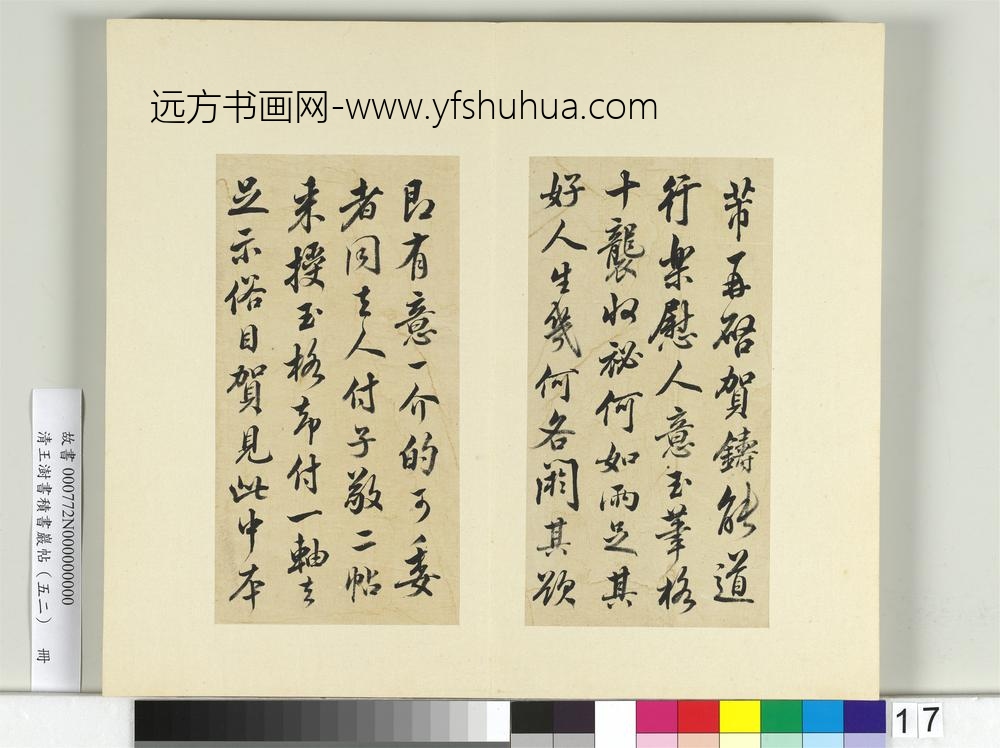 远方书画网-www.yfshuhua.com
芾再啓賀鑄能道
行樂慰人意玉筆格
十襲收祕何如兩足其
好人生幾何各閼其欲
即有意一介的可委
者同去人付子敬二帖
来授玉格却付一軸去
足示俗目賀見此中本
故書 000772N000000000
清王澍書積書巖帖(五二) 冊
17